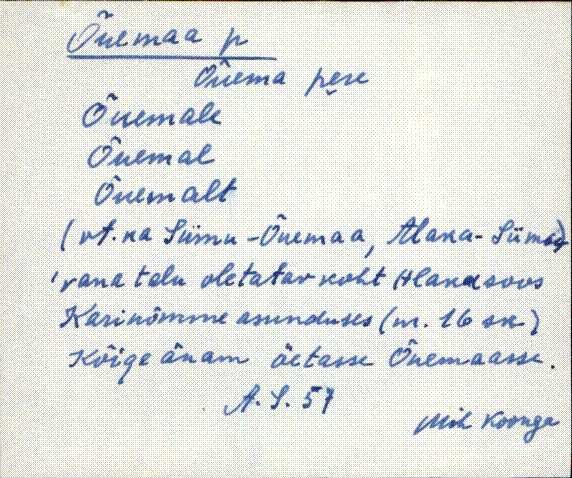 Õuemaa p
Õuema pere
Õuemale
Õuemal
Õuemalt
(vt. ka Siimu-Õuemaa, Alaka-Siimu)
'vana talu oletatav koht Hlakasoos
Karinõmme asunduses (m. 16 sk)
Kõige änam öetasse Õuemaasse.
A. S. 57
Mih Koonga